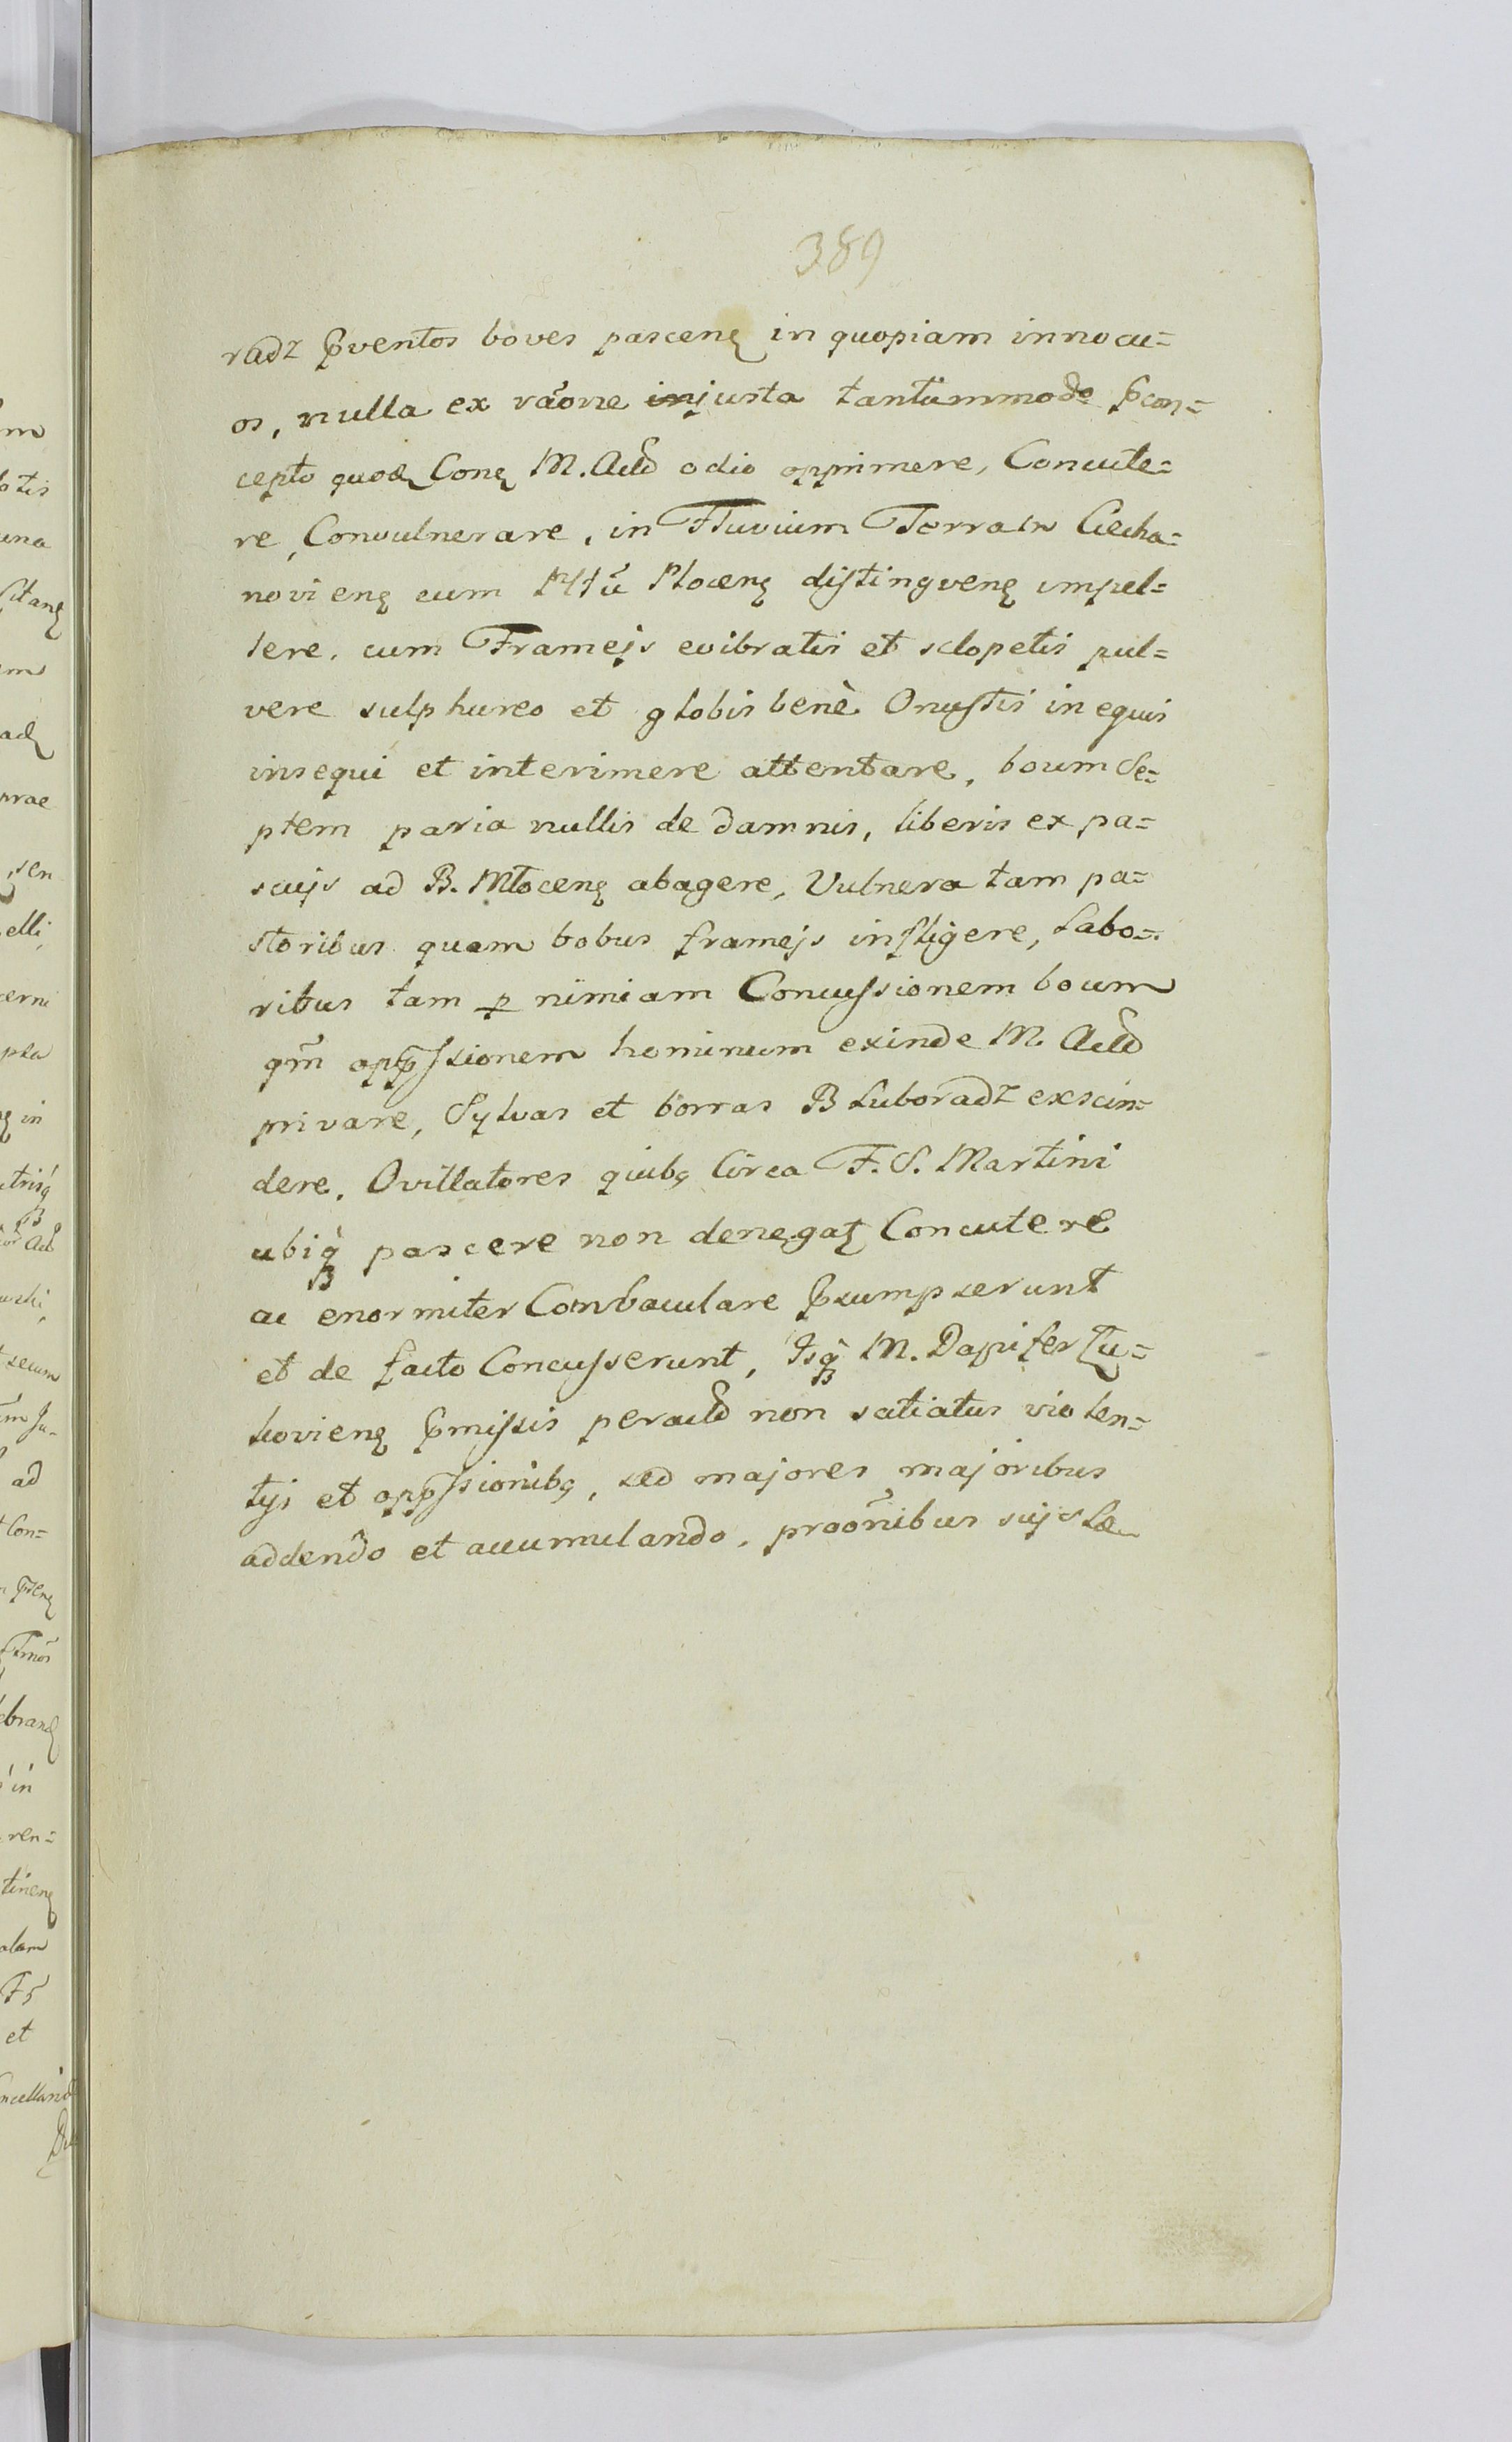 389
radz pventos boves pascenꝗ in quopiam innocu=
os, nulla ex raõne injusta tantummodo pcon=
cepto quodꝗ Conꝗ M. Actd odio opprimere, Concute=
re, Convulnerare, in Fluvium Terram Ciecha=
novienꝗ cum Plocenꝗ distingvenꝗ impel=
lere, cum Framejs evibratis et sclopetis pul=
vere sulphureo et globis benè Onustis in equis
insequi et interimere attentare, boum Se=
ptem paria nullis de damnis, liberis ex pa=
scujs ad B. Mlocenꝗ abagere, Vulnera tam pa=
storibus quam bobus framejs infligere, Labo=
ribus tam ꝑ nimiam Concussionem boum
qm̃ oppssionem hominum exinde M. Actd
privare, Sylvas et borras B Luboradz exscin=
dere, Ovillatores quibꝫ Circa F. S. Martini
ubiq̀ pascere non denegatꝫ Concutere
ac enormiter Conbaculare psumpserunt
et de facto Concusserunt, Isq̀ M. Dapifer
hovienꝗ pmissis peractd non satiatus violen=
tijs et oppssionibꝫ, sed majores majoribus
addendo et accumulando, praõnibus sujs
me
una
ad
prae
sen
elli
erni
pta
in
ad
Con=
in
ren=
tinenꝗ
alam
et